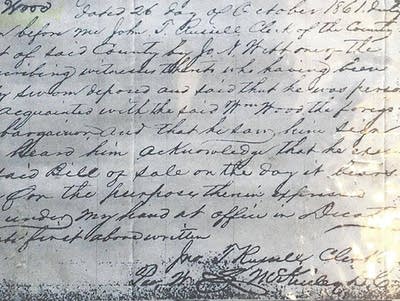 Wood dated 26 day of October 1861. duly
before me John T. Russell Clerk of the County
t of said County by Jo N the
cribing witnesses thereto who having been
y sworn deposed and said that he was perso
acquainted with the said Wm Wood the
bargainor, and that he saw him sign
heard him acknowledge that he
said Bill of sale on the day it bears
for the purposes therein expressed
under my hand at office in Decat
first above written
Jno. T. Russell Clerk